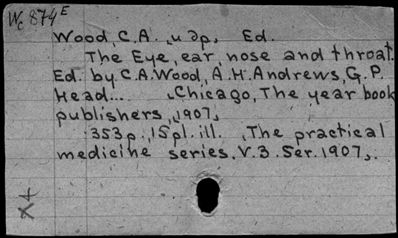 Wc 874E
Wood, C.A. ,и др, Ed.
The Eye, ear, nose and throat.
Ed. by C.A. Wood, A.H. Andrews, G.P.
Head... ,Chicago, The year book
publishers, ,1907,
353p., 15pl. ill. ,The practical
medicine series. V.3. Ser. 1907,.